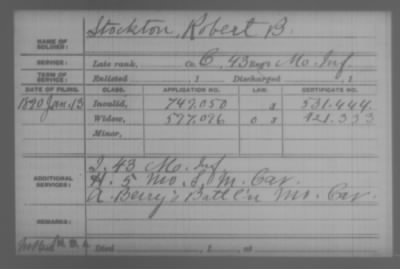 NAME OF SOLDIER: Stockton, Robert B.
SERVICE: Late rank, Co. C, 43 Reg't Mo. Inf.
TERM OF SERVICE: Enlisted , 1 Discharged , 1
DATE OF FILING. CLASS. APPLICATION NO. LAW. CERTIFICATE NO.
1890 Jan. 13 Invalid, 749.050 531.444
Widow, 577.096 421.333
Minor,
ADDITIONAL SERVICES: I, 43 Mo. Inf.
H. 5 Mo. S. M. Cav.
A Berry's Batt'l'n Mo. Cav.
REMARKS:
Died , 1 , at